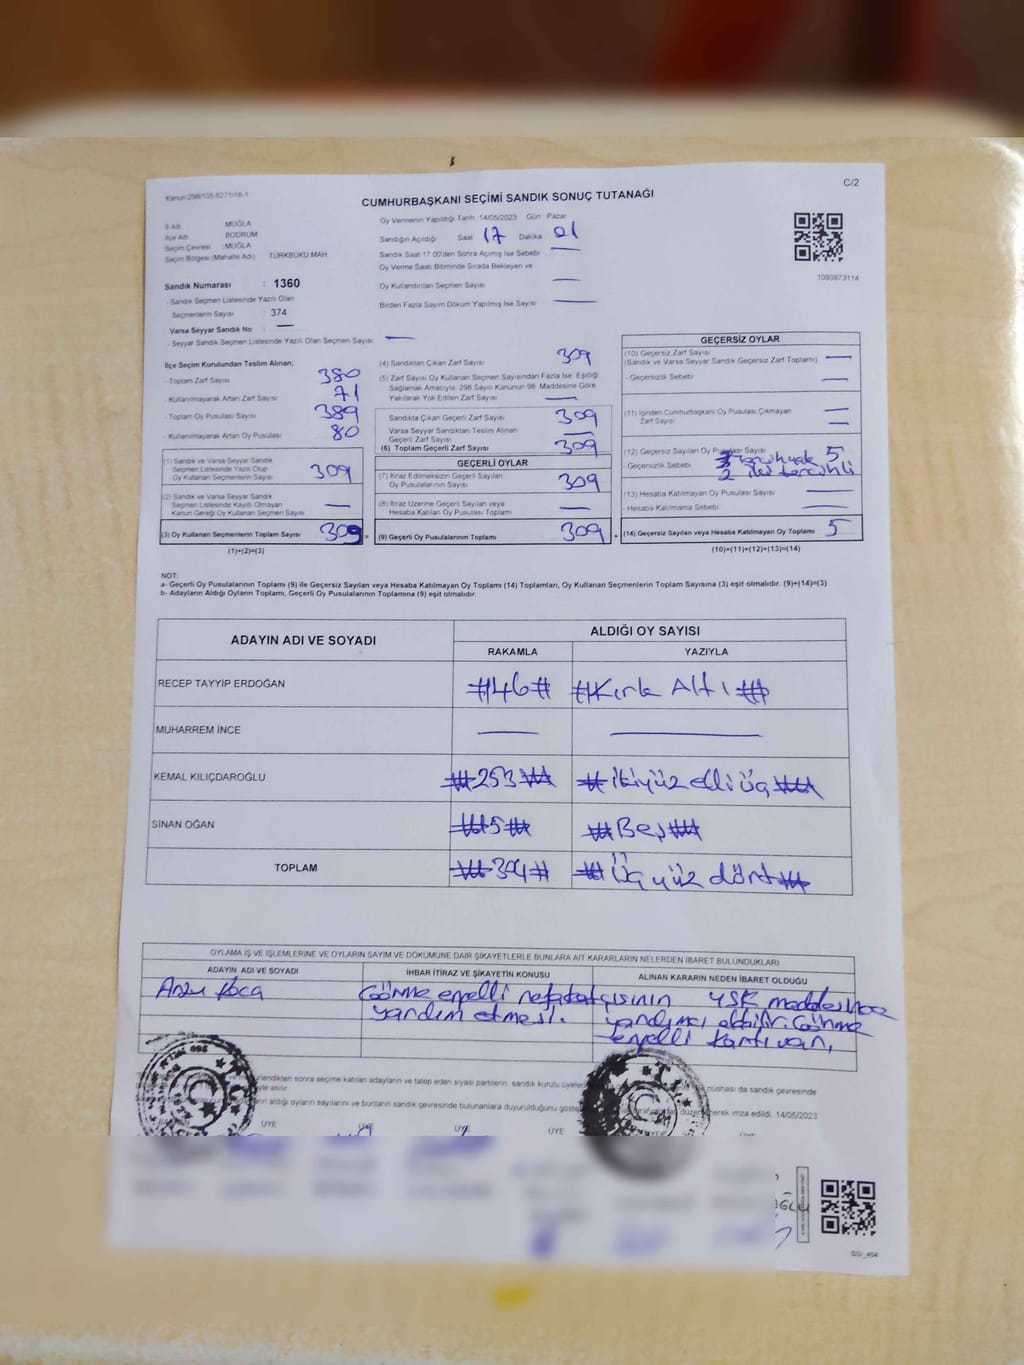 Kanun:298/105.6271/18-1
C/2
CUMHURBAŞKANI SEÇİMİ SANDIK SONUÇ TUTANAĞI
İl Adı MUĞLA
İlçe Adı BODRUM
Seçim Çevresi : MUĞLA
Seçim Bölgesi (Mahalle Adı) TÜRKBÜKÜ MAH
Sandık Numarası : 1360
- Sandık Seçmen Listesinde Yazılı Olan
Seçmenlerin Sayısı : 374
Varsa Seyyar Sandık No : —
- Seyyar Sandık Seçmen Listesinde Yazılı Olan Seçmen Sayısı : —
Oy Vermenin Yapıldığı Tarih 14/05/2023 Gün Pazar
Sandığın Açıldığı Saat 17 Dakika 01
Sandık Saat 17.00'den Sonra Açımış İse Sebebi —
Oy Verme Saati Bitiminde Sırada Bekleyen ve
Oy Kullandırılan Seçmen Sayısı —
Birden Fazla Sayım Döküm Yapılmış İse Sayısı —
1093873114
İlçe Seçim Kurulundan Teslim Alınan;
- Toplam Zarf Sayısı 380
- Kullanılmayarak Artan Zarf Sayısı 71
- Toplam Oy Pusulası Sayısı 389
- Kullanılmayarak Artan Oy Pusulası 80
(1) Sandık ve Varsa Seyyar Sandık
Seçmen Listesinde Yazılı Olup
Oy Kullanan Seçmenlerin Sayısı 309
(2) Sandık ve Varsa Seyyar Sandık
Seçmen Listesinde Kayıtlı Olmayan
Kanun Gereği Oy Kullanan Seçmen Sayısı —
(3) Oy Kullanan Seçmenlerin Toplam Sayısı 309
(1)+(2)=(3)
(4) Sandıktan Çıkan Zarf Sayısı 309
(5) Zarf Sayısı Oy Kullanan Seçmen Sayısından Fazla İse, Eşitliği
Sağlamak Amacıyla, 298 Sayılı Kanunun 98. Maddesine Göre
Yakılarak Yok Edilen Zarf Sayısı —
Sandıkta Çıkan Geçerli Zarf Sayısı 309
Varsa Seyyar Sandıktan Teslim Alınan
Geçerli Zarf Sayısı —
(6) Toplam Geçerli Zarf Sayısı 309
GEÇERLİ OYLAR
(7) İtiraz Edilmeksizin Geçerli Sayılan
Oy Pusulalarının Sayısı 309
(8) İtiraz Üzerine Geçerli Sayılan veya
Hesaba Katılan Oy Pusulası Toplamı —
(9) Geçerli Oy Pusulalarının Toplamı 309
GEÇERSİZ OYLAR
(10) Geçersiz Zarf Sayısı
(Sandık ve Varsa Seyyar Sandık Geçersiz Zarf Toplamı) —
- Geçersizlik Sebebi —
(11) İçinden Cumhurbaşkanı Oy Pusulası Çıkmayan
Zarf Sayısı —
(12) Geçersiz Sayılan Oy Pusulası Sayısı 5
- Geçersizlik Sebebi
2
(13) Hesaba Katılmayan Oy Pusulası Sayısı —
- Hesaba Katılmama Sebebi —
(14) Geçersiz Sayılan veya Hesaba Katılmayan Oy Toplamı 5
(10)+(11)+(12)+(13)=(14)
NOT:
a- Geçerli Oy Pusulalarının Toplamı (9) ile Geçersiz Sayılan veya Hesaba Katılmayan Oy Toplamı (14) Toplamları, Oy Kullanan Seçmenlerin Toplam Sayısına (3) eşit olmalıdır. (9)+(14)=(3)
b- Adayların Aldığı Oyların Toplamı, Geçerli Oy Pusulalarının Toplamına (9) eşit olmalıdır.
ADAYIN ADI VE SOYADI ALDIĞI OY SAYISI
RAKAMLA YAZIYLA
RECEP TAYYİP ERDOĞAN #46# #Kırk Altı#
MUHARREM İNCE — —
KEMAL KILIÇDAROĞLU #253# #ikiyüz elli üç#
SİNAN OĞAN #5# #Beş#
TOPLAM #304# #Üçyüz dört#
OYLAMA İŞ VE İŞLEMLERİNE VE OYLARIN SAYIM VE DÖKÜMÜNE DAİR ŞİKAYETLERLE BUNLARA AİT KARARLARIN NELERDEN İBARET BULUNDUKLARI
ADAYIN ADI VE SOYADI İHBAR İTİRAZ VE ŞİKAYETİN KONUSU ALINAN KARARIN NEDEN İBARET OLDUĞU
Arzu Koca Görme engelli refakatçisinin YSK maddesince
yardım etmesi. yardımcı olabilir. Görme
engelli kartı var,
sandık kurulu üyeleri
nüshası da sandık çevresinde
aldığı oyların sayılarını ve bunların sandık çevresinde bulunanlara duyurulduğunu
imza edildi. 14/05/2023
ÜYE ÜYE ÜYE ÜYE